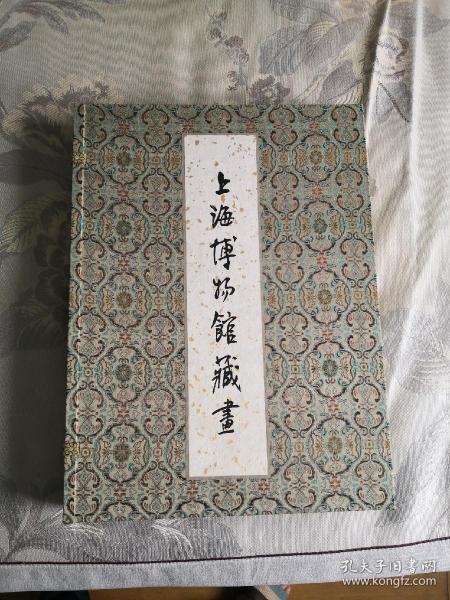 上海博物館藏畫
孔夫子旧书网
www.kongfz.com